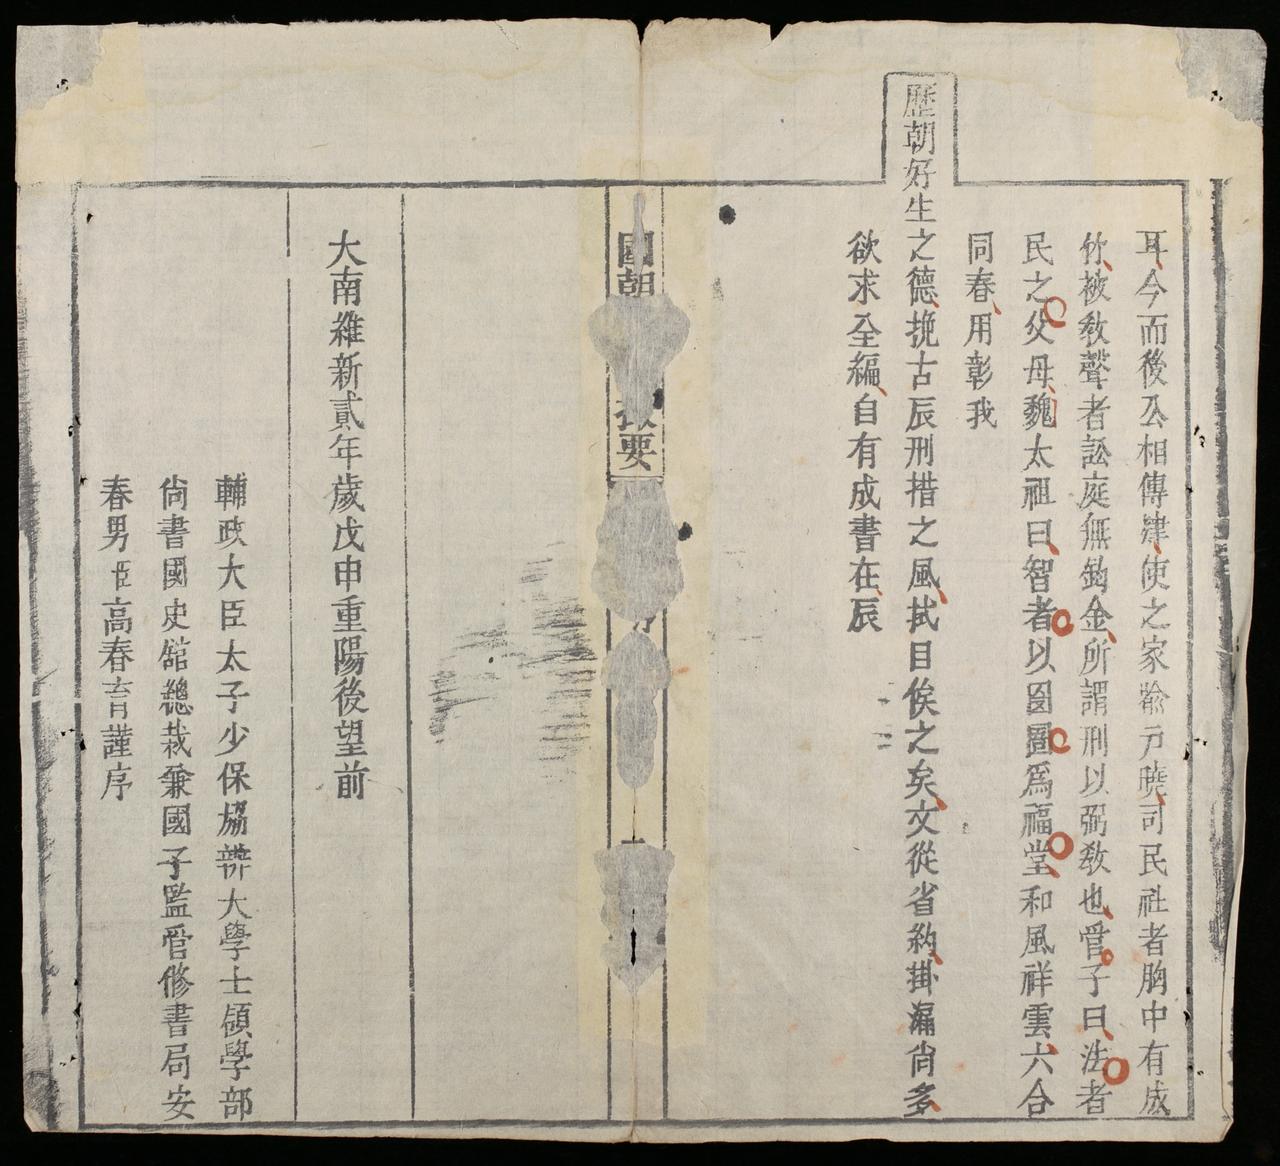 耳今而後公相傳肄使之家喩戸曉司民社者胸中有成
竹被敎聲者訟庭無鈎金所謂刑以弼敎也管子曰法者
民之父母魏太祖曰智者以囹圄爲福堂和風祥雲六合
同春用彰我
歷朝好生之德挽古辰刑措之風拭目俟之矣文從省約掛漏尙多
欲求全編自有成書在辰
國朝
要
大南維新貳年歲戊申重陽後望前
輔政大臣太子少保協辦大學士領學部
尙書國史舘總裁兼國子監管修書局安
春男臣高春育謹序